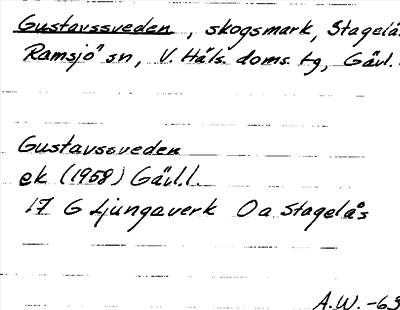 Gustavssveden, skogsmark, Stagelå
Ramsjö sn, V. Häls. doms. tg, Gävl.
Gustavssveden
ek (1958) Gävl.l.
17 G Ljungaverk Oa Stagelås
A.W. -63